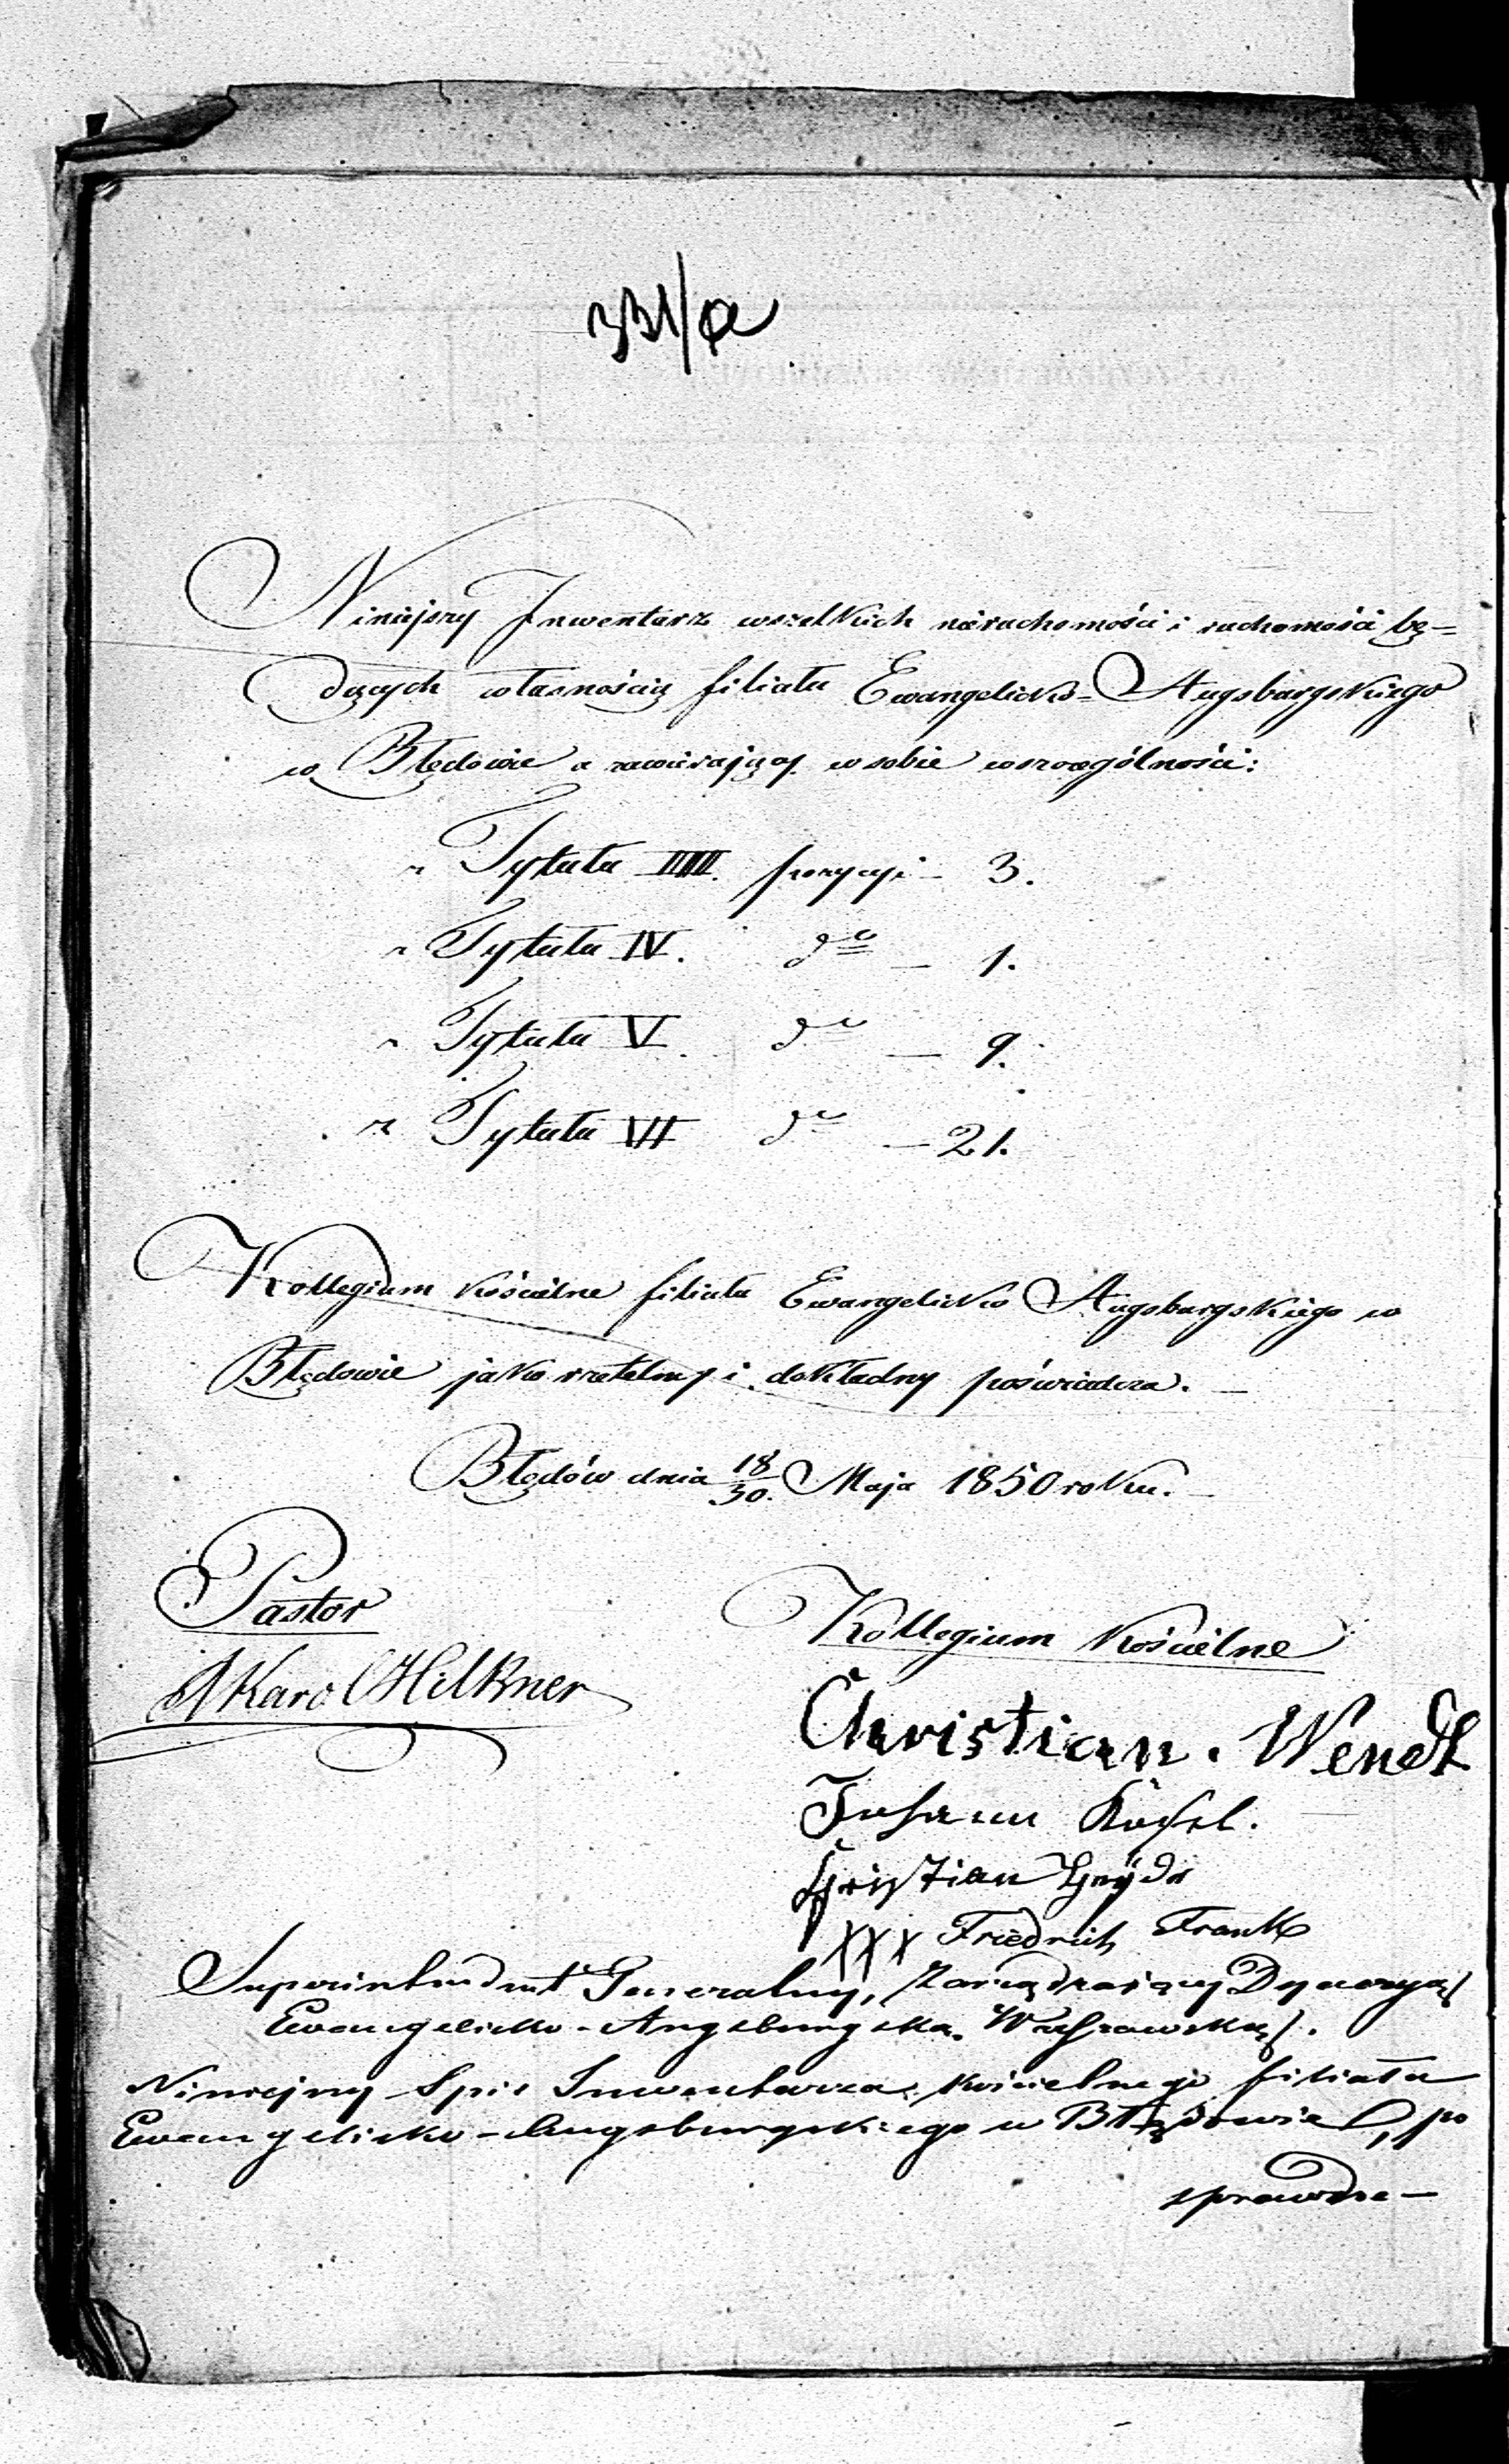 331/a
Niniejszy Inwentarz wszelkich nieruchomości i ruchomości bę=
dących własnością filiału Ewangelicko-Augsburgskiego
w Błędowie a zawierający w sobie wszczególności:
z Tytułu IIII. pozycyi – 3.
z Tytułu IV. do – 1.
z Tytułu V. do – 9.
z Tytułu VII do – 21.
Kollegium kościelne filiału Ewangelicko Augsburgskiego w
Błędowie jako rzetelny i dokładny poświadcza. –
Błędów dnia 18/30. Maja 1850 roku. –
Pastor
Karol Hilkner
Kollegium Kościelne
Christian. Wendt
Johann
Christian
XXX Friedrich Frank
Superintendent Generalny, Zarządzający Dyecezyą
Ewangelicko-Augsburgską Warszawską.
Niniejszy Spis Inwentarza kościelnego filiału
Ewangelicko-Augsburgskiego w Błędowie, po
sprawdze–